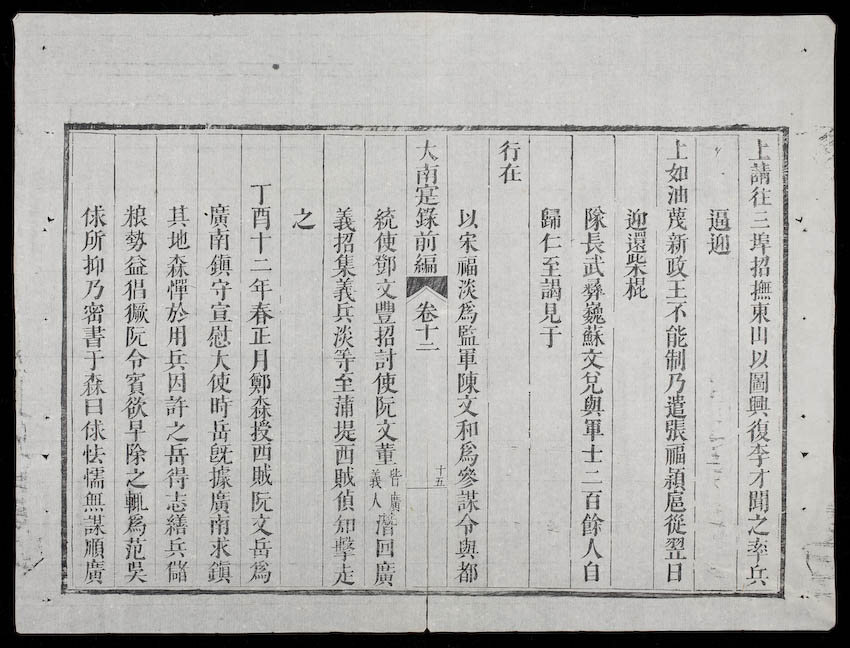 上請往三埠招撫東山以圖興復李才聞之率兵
逼迎
上如油茂新政王不能制乃遣張福頴扈從翌日
迎還柴棍
隊長武彝巍蘇文兌與軍士二百餘人自
歸仁至謁見于
行在
以宋福淡爲監軍陳文和爲參謀令與都
大南寔錄前編 卷十二 十五
統使鄧文豐招討使阮文董皆廣義人潛回廣
義招集義兵淡等至蒲堤西賊偵知擊走
之
丁酉十二年春正月鄭森授西賊阮文岳爲
廣南鎮守宣慰大使時岳旣據廣南求鎮
其地森憚於用兵因許之岳得志繕兵儲
粮勢益猖獗阮令賓欲早除之輒爲范吳
俅所抑乃密書于森曰俅怯懦無謀順廣